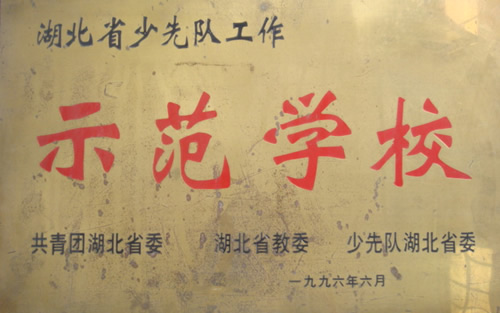 湖北省少先队工作
示范学校
共青团湖北省委 湖北省教委 少先队湖北省委
一九九六年六月